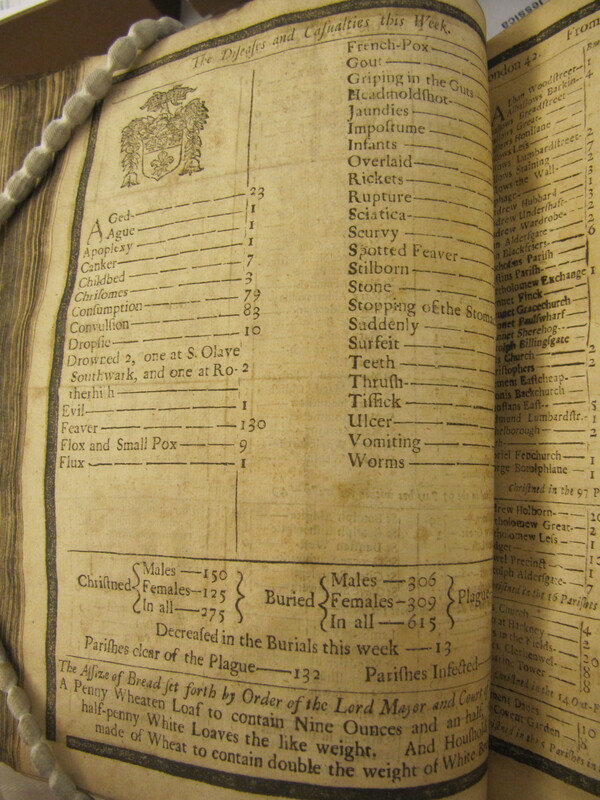 The Diseases and Casualties this Week.
Aged 23
Ague 1
Apoplexy 1
Canker 1
Childbed 7
Chrisomes 3
Consumption 79
Convulsion 83
Dropsie 10
Drowned 2, one at S. Olave
Southwark, and one at Ro- 2
Evil 1
Feaver 130
Flox and Small Pox 9
Flux 1
French-Pox
Gout
Griping in the Guts
Headmoldshot
Jaundies
Impostume
Infants
Overlaid
Rickets
Rupture
Sciatica
Scurvy
Spotted Feaver
Stilborn
Stone
Stopping of the Stom
Suddenly
Surfeit
Teeth
Thrush
Tissick
Ulcer
Vomiting
Worms
Christned Males 150
Females 125
In all 275
Buried Males 306
Females 309
In all 615
Plague
Decreased in the Burials this week 13
Parishes clear of the Plague 132 Parishes Infected
The Assize of Bread set forth by Order of the Lord Major and Court of
A Penny Wheaten Loaf to contain Nine Ounces and an half
half-penny White Loaves the like weight. And Houshold
made of Wheat to contain double the weight of White
ondon 42. From
Woodstreet
Barkin
Breadstreet
Great
Honilane
Less
Lumbardstreet
Staining
the Wall
Hubbard 3
Undershaft 2
Wardrobe 2
Aldersgate 6
Blackfriers
Parish
Parish
Exchange 1
Finck
Gracechurch
Paulswharf
Sherehog
Billingsgate
Church 2
2
Eastcheap
Backchurch
East 5
Lumbardstr. 1
2
Fenchurch 1
Botolphlane 1
Christned in the 97 P
Holborn
Great 2
Less 1
Precinct
Aldersgate 7
in the 16 Parishes
Church 4
at Hackney 2
in the Fields
Clerkenwel
Tower
Covent Garden
jessica